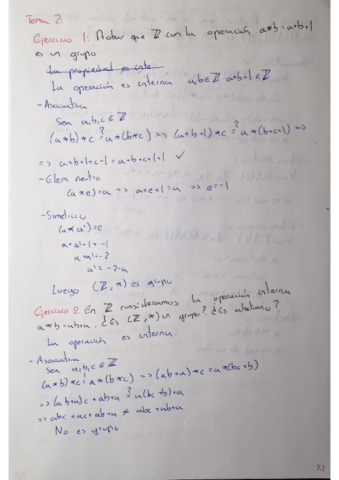 Tema 2:
Ejercicio 1: Probar que ℤ con la operación a*b=a+b+1
es un grupo
La propiedad es inte
La operación es interna a,b∈ℤ a+b+1∈ℤ
- Asociativa
Sea a,b,c∈ℤ
(a*b)*c ?= a*(b*c) => (a+b+1)*c ?= a*(b+c+1) =>
=> a+b+1+c+1 = a+b+c+1+1 ✓
- Elem neutro
(a*e)=a => a+e+1=a => e=-1
- Simétrico
(a*a')=e
a+a'+1=-1
a+a'=-2
a'=-2-a
Luego (ℤ,*) es grupo
Ejercicio 2. En ℤ consideramos la operación interna
a*b=ab+a. ¿Es (ℤ,*) un grupo? ¿Es abeliano?
La operación es interna.
- Asociativa
Sea a,b,c∈ℤ
(a*b)*c ?= a*(b*c) => (ab+a)*c = a*(bc+b)
=> (ab+a)c+ab+a ?= a(bc+b)+a
=> abc+ac+ab+a ≠ abc+ab+a
No es grupo
2.1